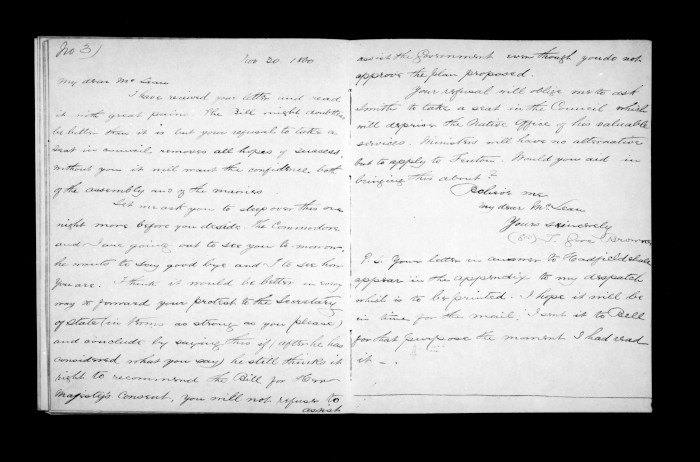 No 3)
Nov 20. 1860
My dear McLean
I have received your letter and read
it with great pain. The Bill might doubtless
be better than it is but your refusal to take a
seat in council removes all hopes of success.
Without you it will want the confidence both
of the assembly and of the maories
Let me ask you to sleep over this one
night more before you decide. The Commodore
and I are going out to see you to morrow.
he wants to say good bye and I to see how
you are. I think it would be better in every
way to forward your protest to the Secretary
of State (in terms as strong as you please)
and conclude by saying this if (after he has
considered what you say) he still thinks it
right to recommend the Bill for Her
Majesty's Consent, you will not refuse to
assist
assist the Government even though you do not
approve the plan proposed.
Your refusal will oblige me to ask
Smith to take a seat in the Council which
will deprive the Native Office of his valuable
services. Ministers will have no alternative
but to apply to Fenton. Would you aid in
bringing this about?
Believe me
my dear McLean
Yours sincerely
T. Gore Browne
P.S. Your letter in answer to Hadfield shall
appear in the appendix to my despatch
which is to be printed. I hope it will be
in time for the mail. I sent it to Bell
for that purpose the moment I had read
it -.